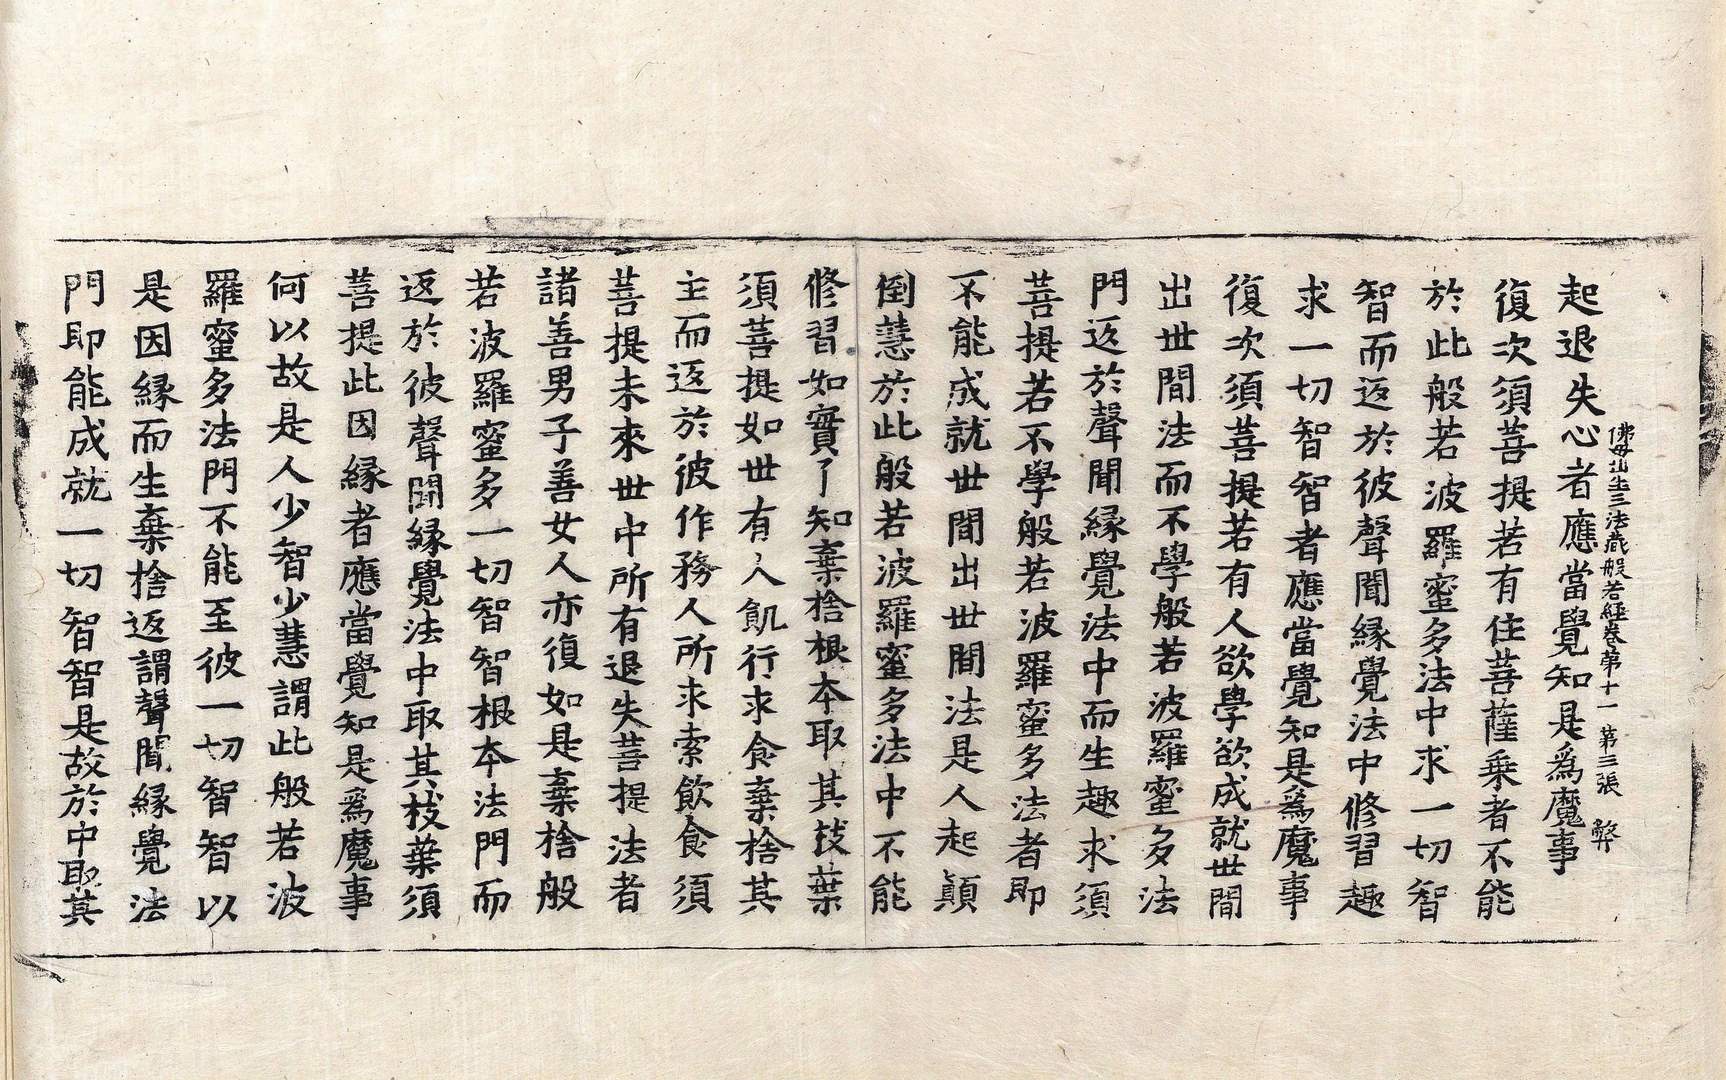 佛母出生三法藏般若經卷第十一　第三張　弊
起退失心者應當覺知是爲魔事
復次須菩提若有住菩薩乘者不能
於此般若波羅蜜多法中求一切智
智而返於彼聲聞緣覺法中修習趣
求一切智智者應當覺知是爲魔事
復次須菩提若有人欲學欲成就世間
出世間法而不學般若波羅蜜多法
門返於聲聞緣覺法中而生趣求須
菩提若不學般若波羅蜜多法者即
不能成就世間出世間法是人起顚
倒慧於此般若波羅蜜多法中不能
修習如實了知棄捨根本取其枝葉
須菩提如世有人飢行求食棄捨其
主而返於彼作務人所求索飮食須
菩提未來世中所有退失菩提法者
諸善男子善女人亦復如是棄捨般
若波羅蜜多一切智智根本法門而
返於彼聲聞緣覺法中取其枝葉須
菩提此因緣者應當覺知是爲魔事
何以故是人少智少慧謂此般若波
羅蜜多法門不能至彼一切智智以
是因緣而生棄捨返謂聲聞緣覺法
門即能成就一切智智是故於中取其